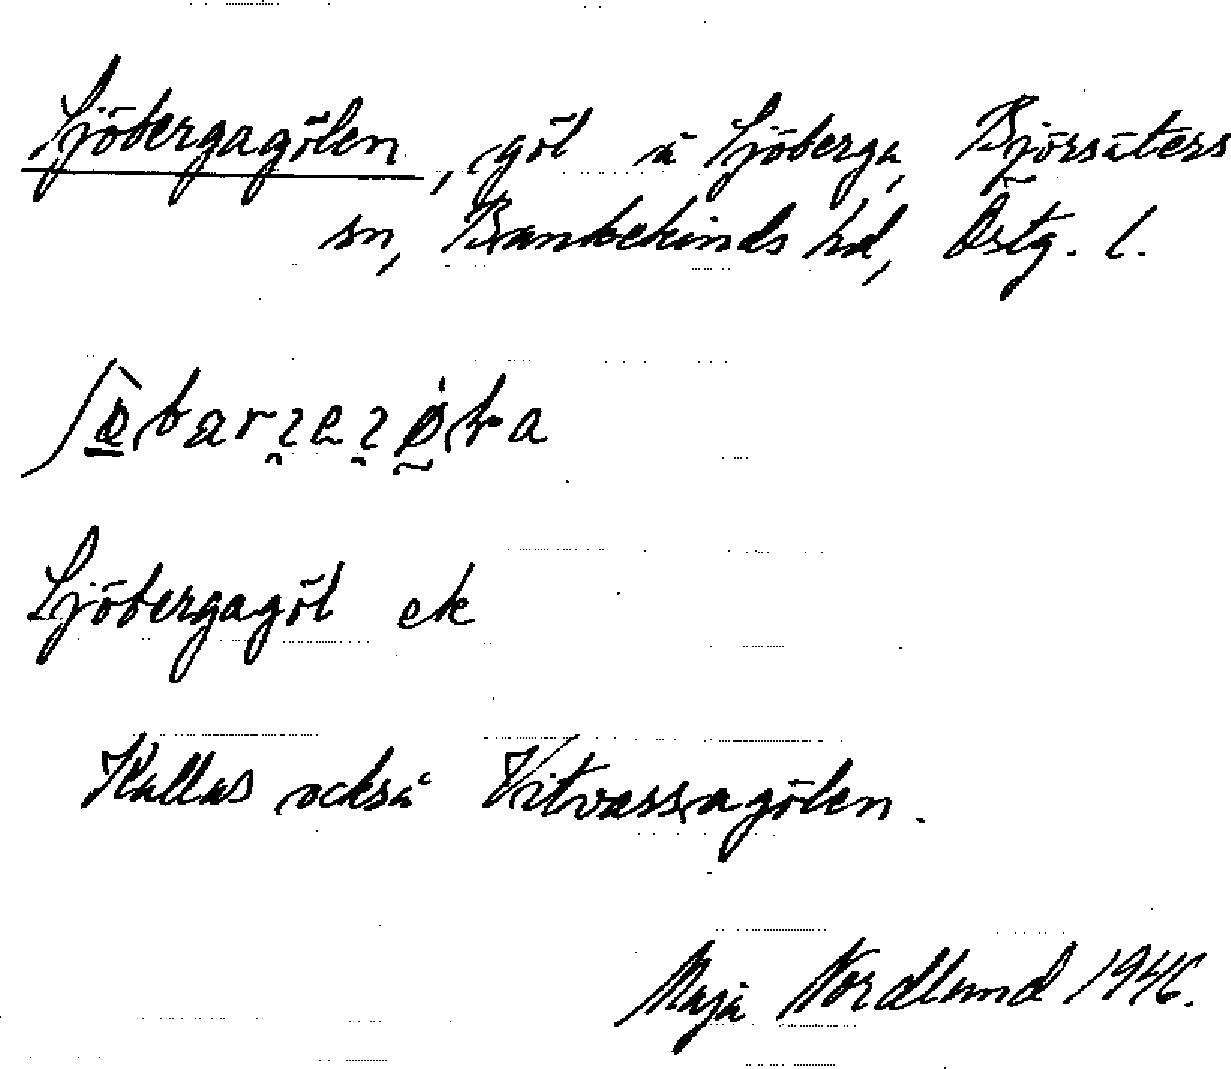 Sjöbergagölen, göl å Sjöberga, Björsäters
sn, Bankekinds hd, Östg. l.
Sjöbergagöl ek
Kallas också Vitvassagölen.
Maja Nordlund 1946.